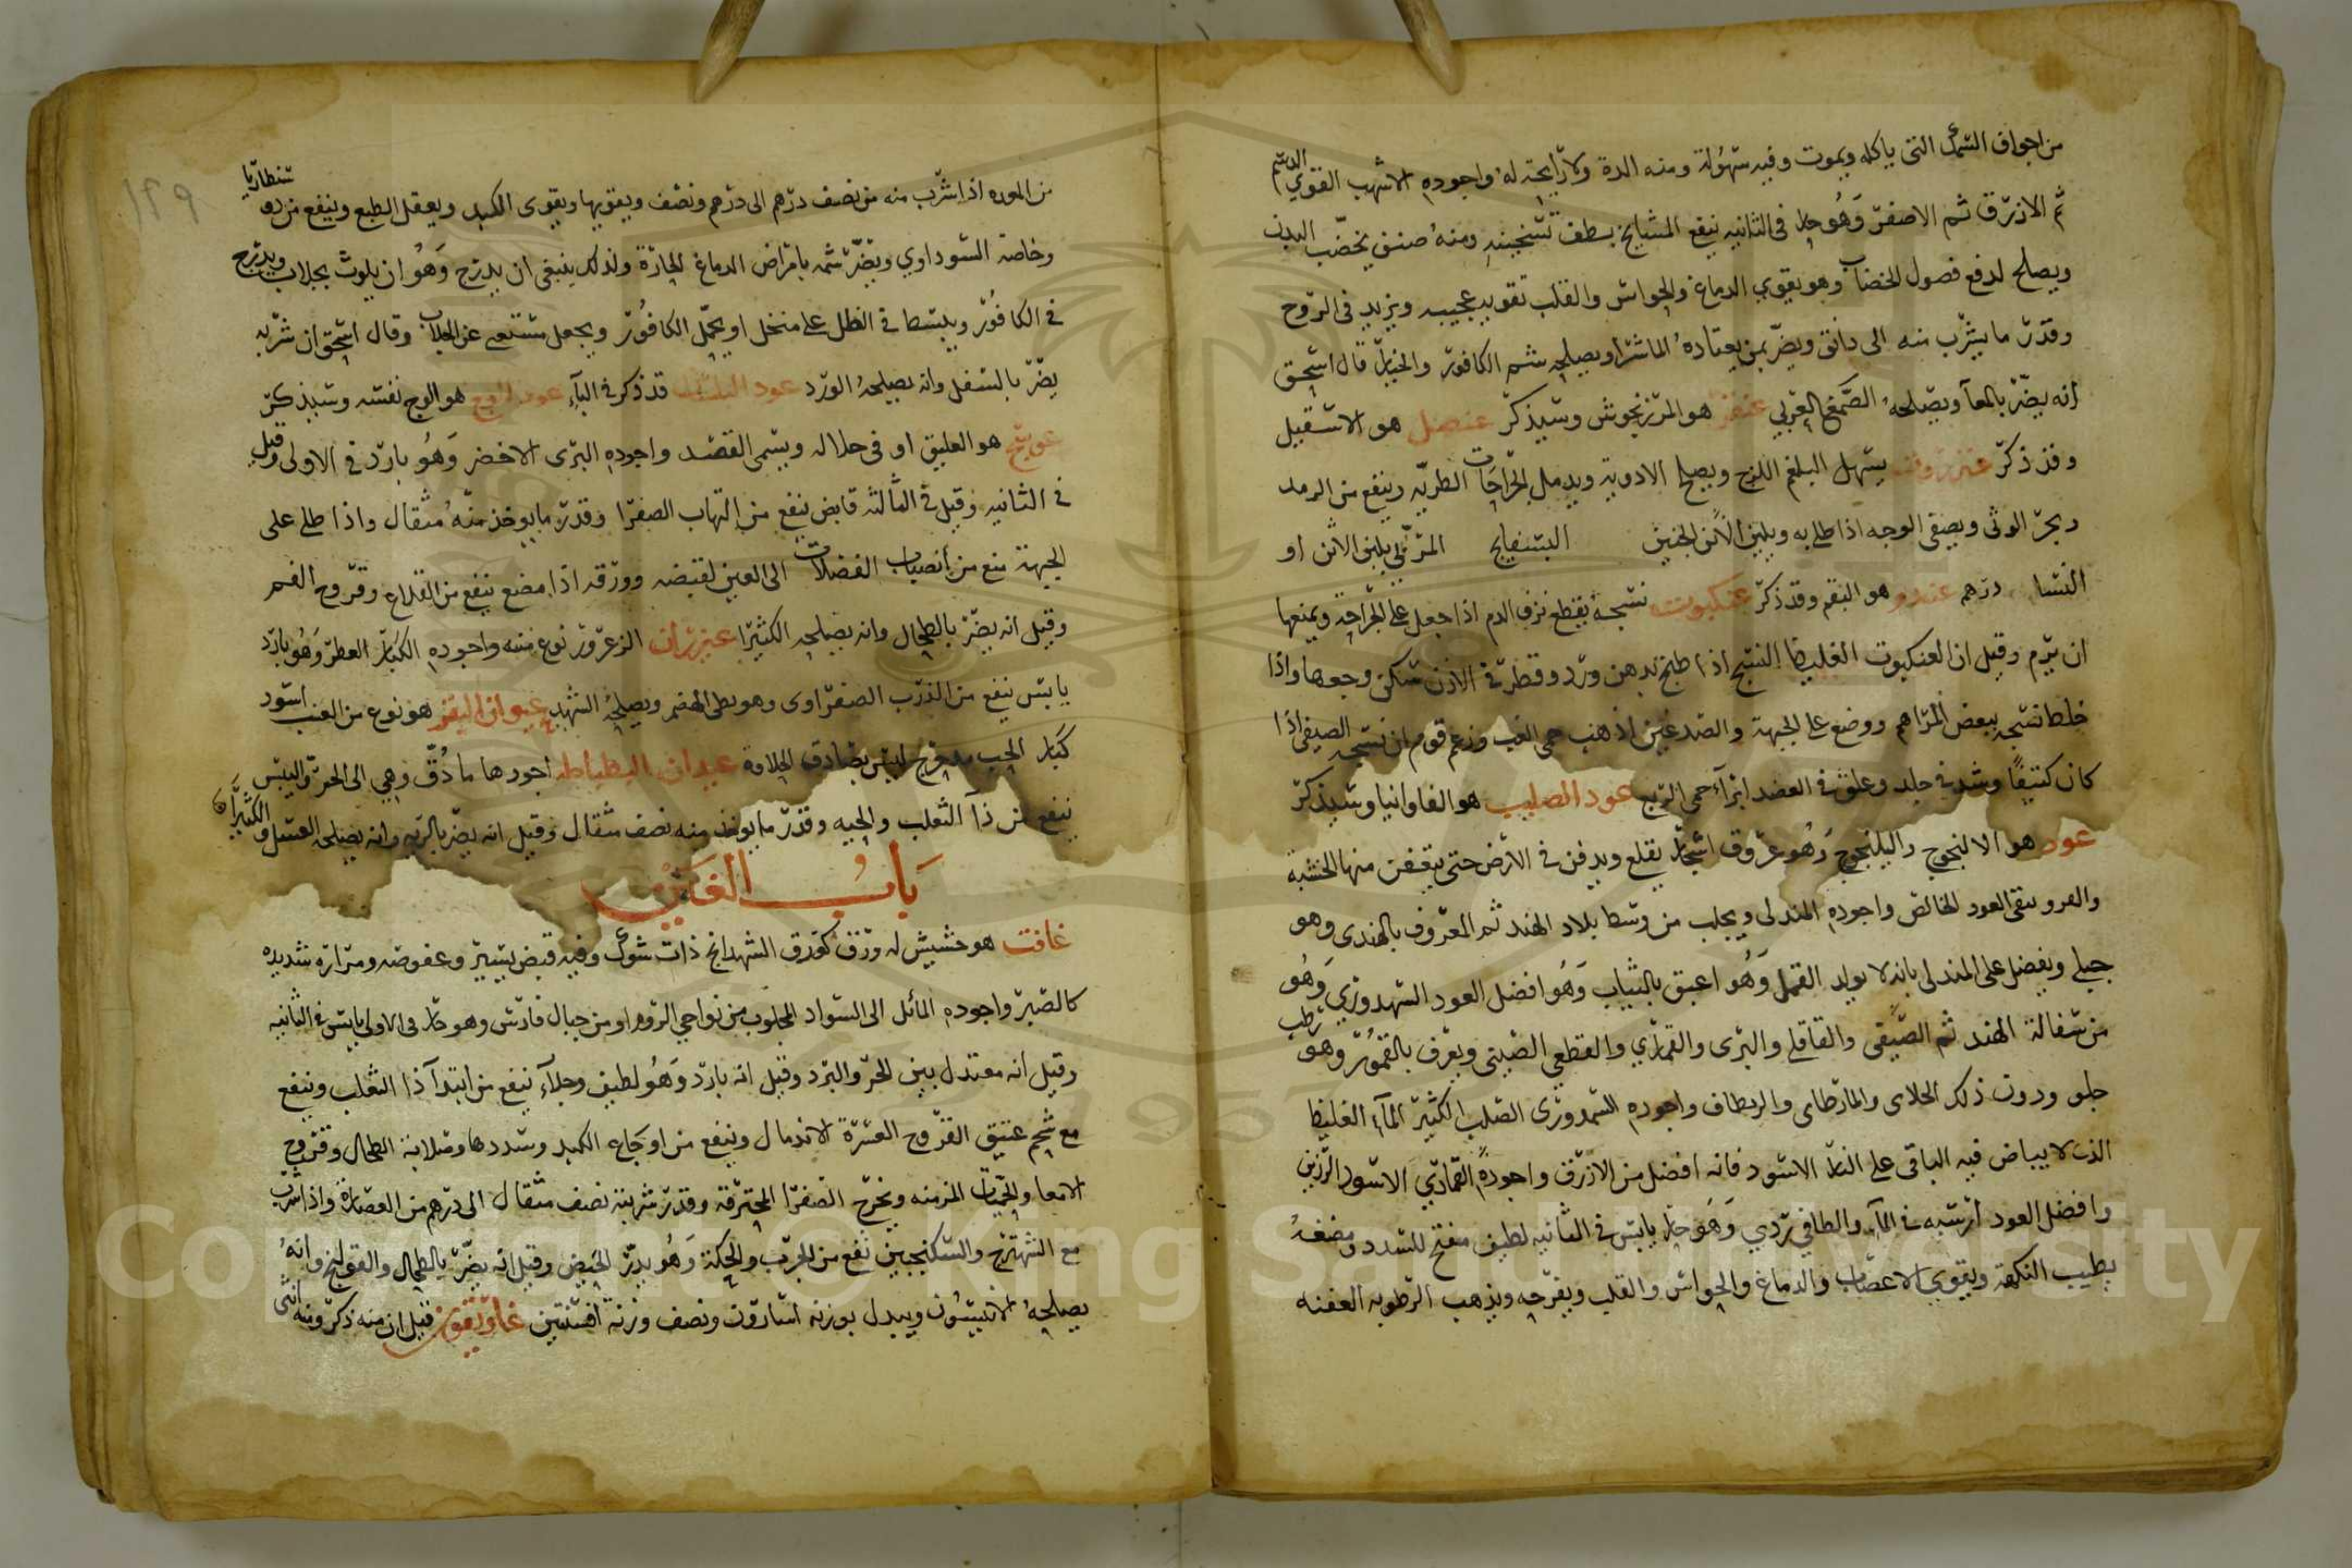 من اجواف السمك التى ياكله ويموت وفيه سهولة ومنه الدة ولا رايحة له واجوده الاشهب القوي الدسم
ثم الازرق ثم الاصفر وهو حار فى الثانيه ينفع المشايخ بلطف تسخينه ومنه صنف يخضب اليدن
ويصلح لدفع فصول الخضاب وهو يقوي الدماغ والحواس والقلب تقويه عجيبه ويزيد فى الروح
وقدر ما يشرب منه الى دانق ويضر بمن يعتاده الماشرا ويصلحه شم الكافور والخيار قال اسحق
انه يضر بالمعا ويصلحه الصمغ العربي عنقز هو المرزنجوش وسيذكر عنصل هو الاسقيل
وقد ذكر عنزروت يسهل البلغم اللزج ويصلح الادوية ويدمل الجراحات الطريه وينفع من الرمد
ويجبر الوثى ويصفى الوجه اذا طلى به ويلين الخشن البسفايج المربي يلين الاثن او
النشا درهم عندم هو البقم وقد ذكر عنكبوت نسجه يقطع نزف الدم اذا جعل على الجراحة ويمنعها
ان ترم وقيل ان العنكبوت الغليظ النسج اذا طبخ بدهن ورد وقطر فى الاذن سكن وجعها واذا
خلط نسجه ببعض المراهم ووضع على الجبهة والصدغين اذهب حمى الغب وزعم قوم ان نسجه الصيفى اذا
كان كثيفا وشد فى جلد وعلق فى العضد ابرآ حمى الربع عود الصليب هو الفاوانيا وسيذكر
عود هو الالنجوج واليلنجوج وهو عروق اشجار يقلع ويدفن فى الارض حتى يتعفن منها الخشبة
والعرو ينقى العود الخالص واجوده المندلى ويجلب من وسط بلاد الهند ثم المعروف بالهندى وهو
جبلى ويفضل على المندلى بانه لا يولد القمل وهو اعبق بالثياب وهو افضل العود السمدوزي وهو
من سفالة الهند ثم الصيفى والقاقلى والبرى والقمارى والقطعى الصينى ويعرف بالقمور وهو رطب
حلو ودون ذلك الحلاى والمارطاى والربطاف واجوده السمدورى الصلب الكثير المآ الغليظ
الذى لا بياض فيه الباقى على النار الاسود فانه افضل من الازرق واجوده القمارى الاسود الرزين
وافضل العود ارسبه فى المآ والطافى ردي وهو حار يابس فى الثانيه لطيف مفتح للسدد ومضغه
يطيب النكهة ويقوي الاعصاب والدماغ والحواس والقلب ويفرحه ويذهب الرطوبه العفنه
١٣٩
من المعده اذا شرب منه من نصف درهم الى درهم ونصف ويقويها ويقوى الكبد ويعقل الطبع وينفع من دوسنطاريا
وخاصة السوداوي ويضر شمه بامراض الدماغ الحارة ولذلك ينبغى ان يدبرج وهو ان يلوث بجلاب ويدرج
فى الكافور ويبسط فى الظل على منخل او يحمل الكافور ويجعل مستنقعى عن الجلاب وقال اسحق ان شربه
يضر بالسفل وانه يصلحه الورد عود البلسان قد ذكر فى البآء عود الوج هو الوج نفسه وسيذكر
عوسج هو العليق او فى حلاله ويسمى القصد واجوده البرى الاخضر وهو بارد فى الاولى وقيل
فى الثانيه وقيل فى الثالثه قابض ينفع من التهاب الصفرا وقدر ما يوخذ منه مثقال واذا طلى على
الجبهة منع من انصباب الفضلات الى العين لقبضه وورقه اذا مضغ ينفع من القلاع وقروح الفم
وقيل انه يضر بالطحال وانه يصلحه الكثيرا عيزران الزعرور نوع منه واجوده الكبار العطر وهو بارد
يابس ينفع من الذرب الصفراوى وهو بطى الهضم ويصلحه الشهد عيون البقر هو نوع من العنب اسود
كبار الحب مدحرج ليس بصادق الحلاوة عيدان البطباط اجودها ما دق وهي الى الحر واليبس
ينفع من دآ الثعلب والحيه وقدر ما يوخذ منه نصف مثقال وقيل انه يضر بالريه وانه يصلحه العسل والكثيرا
باب الغين
غافت هو حشيش له ورق كورق الشهدانج ذات شوك وفيه قبض يسير وعفوصه ومرارة شديده
كالصبر واجوده المائل الى السواد المجلوب من نواحي الروم او من جبال فارس وهو حار فى الاولى يابس فى الثانيه
وقيل انه معتدل بين الحر والبرد وقيل انه بارد وهو لطيف وجلآء ينفع من ابتدآ دآ الثعلب وينفع
مع شحم عتيق القروح العسرة الاندمال وينفع من اوجاع الكبد وسددها وصلابة الطحال وقروح
الامعا والحميات المزمنه ويخرج الصفرا المحترقة وقدر شربته نصف مثقال الى درهم من العصارة واذا شرب
مع الشهترج والسكنجبين نفع من الجرب والحكة وهو يدر الحيض وقيل انه يضر بالطحال والقولنج وانه
يصلحه الانيسون ويبدل بوزنه اسارون ونصف وزنه افسنتين غاريقون قيل ان منه ذكر ومنه انثى
Copyright © King Saud University